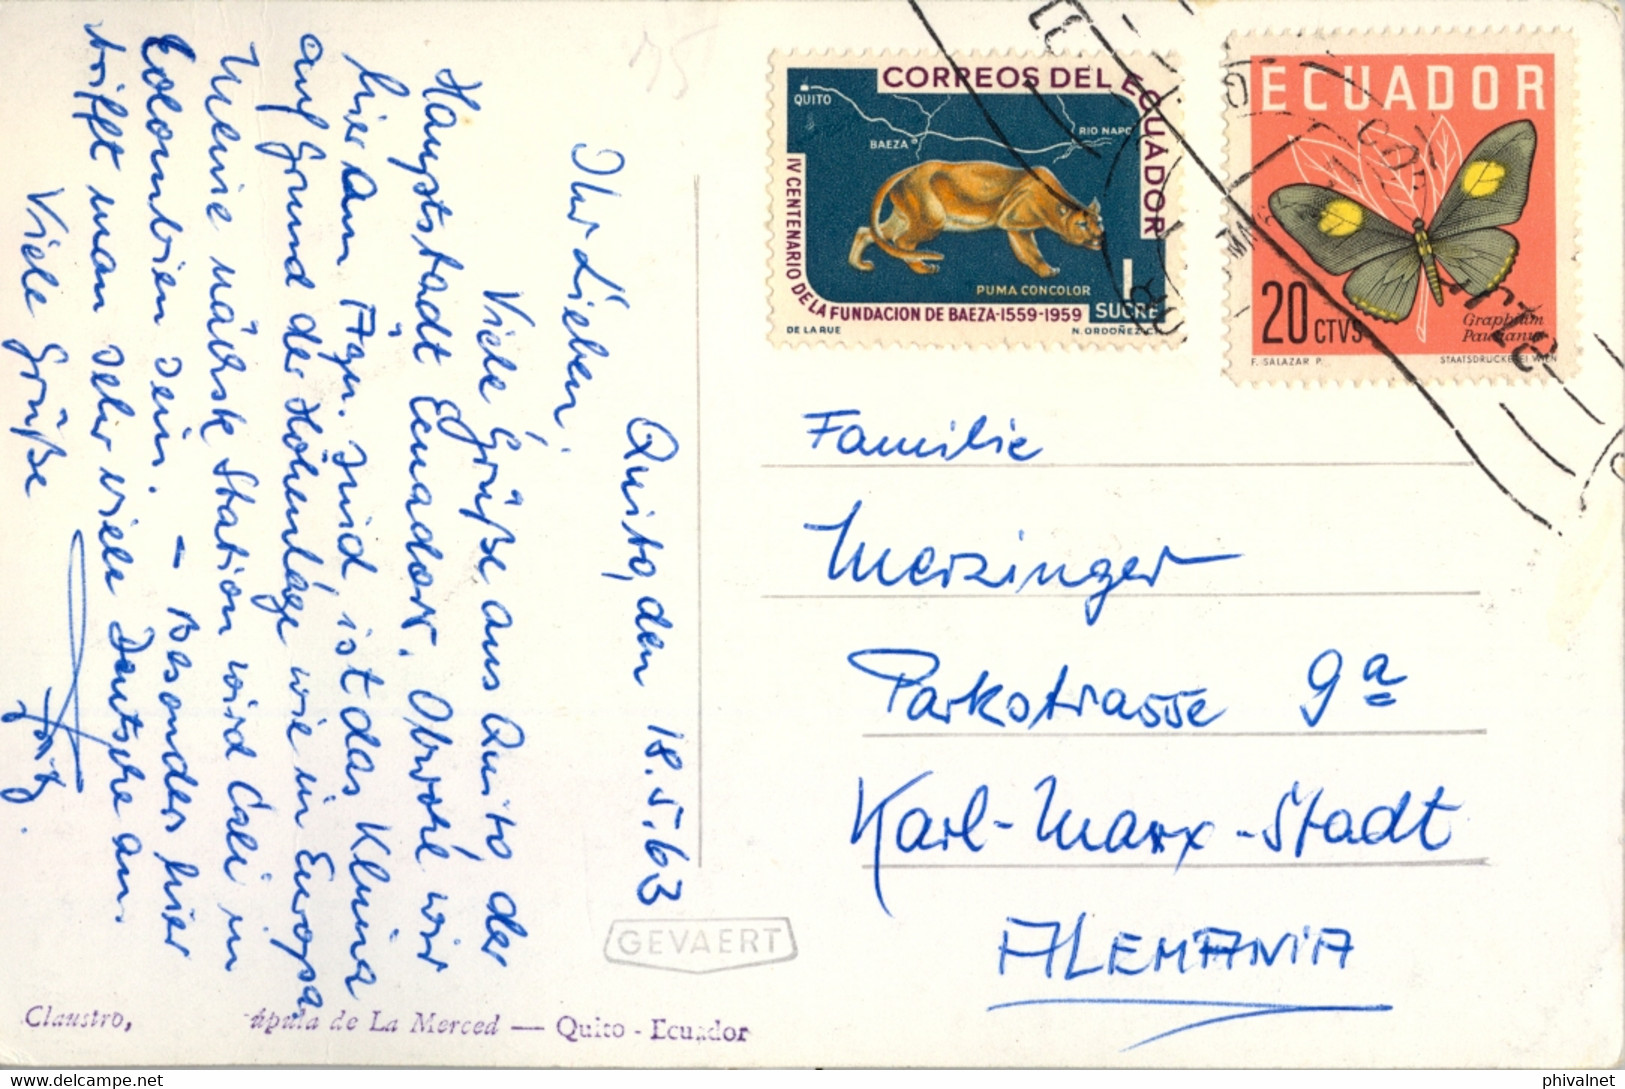 Quito, den 18.5.63
Ihr Lieben.
Viele Grüße aus Quito, der
Hauptstadt Ecuadors. Obwohl wir
hier am Äqu. sind, ist das Klima
auf Grund der Höhenlage wie in Europa.
Meine nächste Station wird Cali in
Colombien sein. – Besonders hier
trifft man sehr viele Deutsche an.
Viele Grüße
Claustro, úpula de La Merced — Quito - Ecuador
GEVAERT
CORREOS DEL ECUADOR
QUITO
BAEZA
RIO NAPO
IV CENTENARIO DE LA FUNDACION DE BAEZA-1559-1959
PUMA CONCOLOR
1 SUCRE
DE LA RUE
N. ORDOÑEZ
ECUADOR
20 CTVS
Graphium
F. SALAZAR P.
STAATSDRUCKEREI WIEN
Familie
Merzinger
Parkstrasse 9a
Karl-Marx-Stadt
ALEMANIA
www.delcampe.net
phivalnet